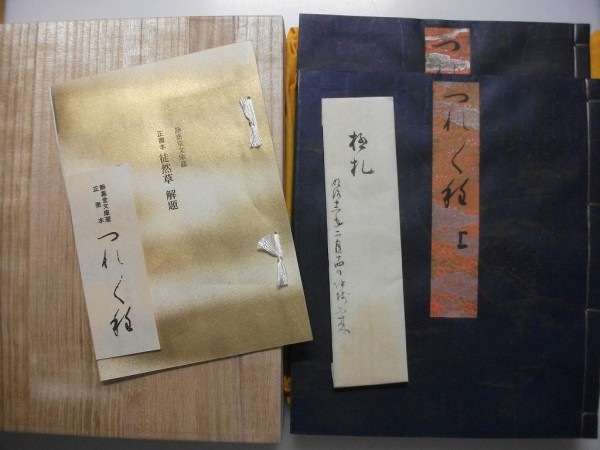 静嘉堂文庫蔵
正徹本 徒然草 解題
静嘉堂文庫蔵
正徹本
つれ〱種
極札
つれ〱種 上
つ